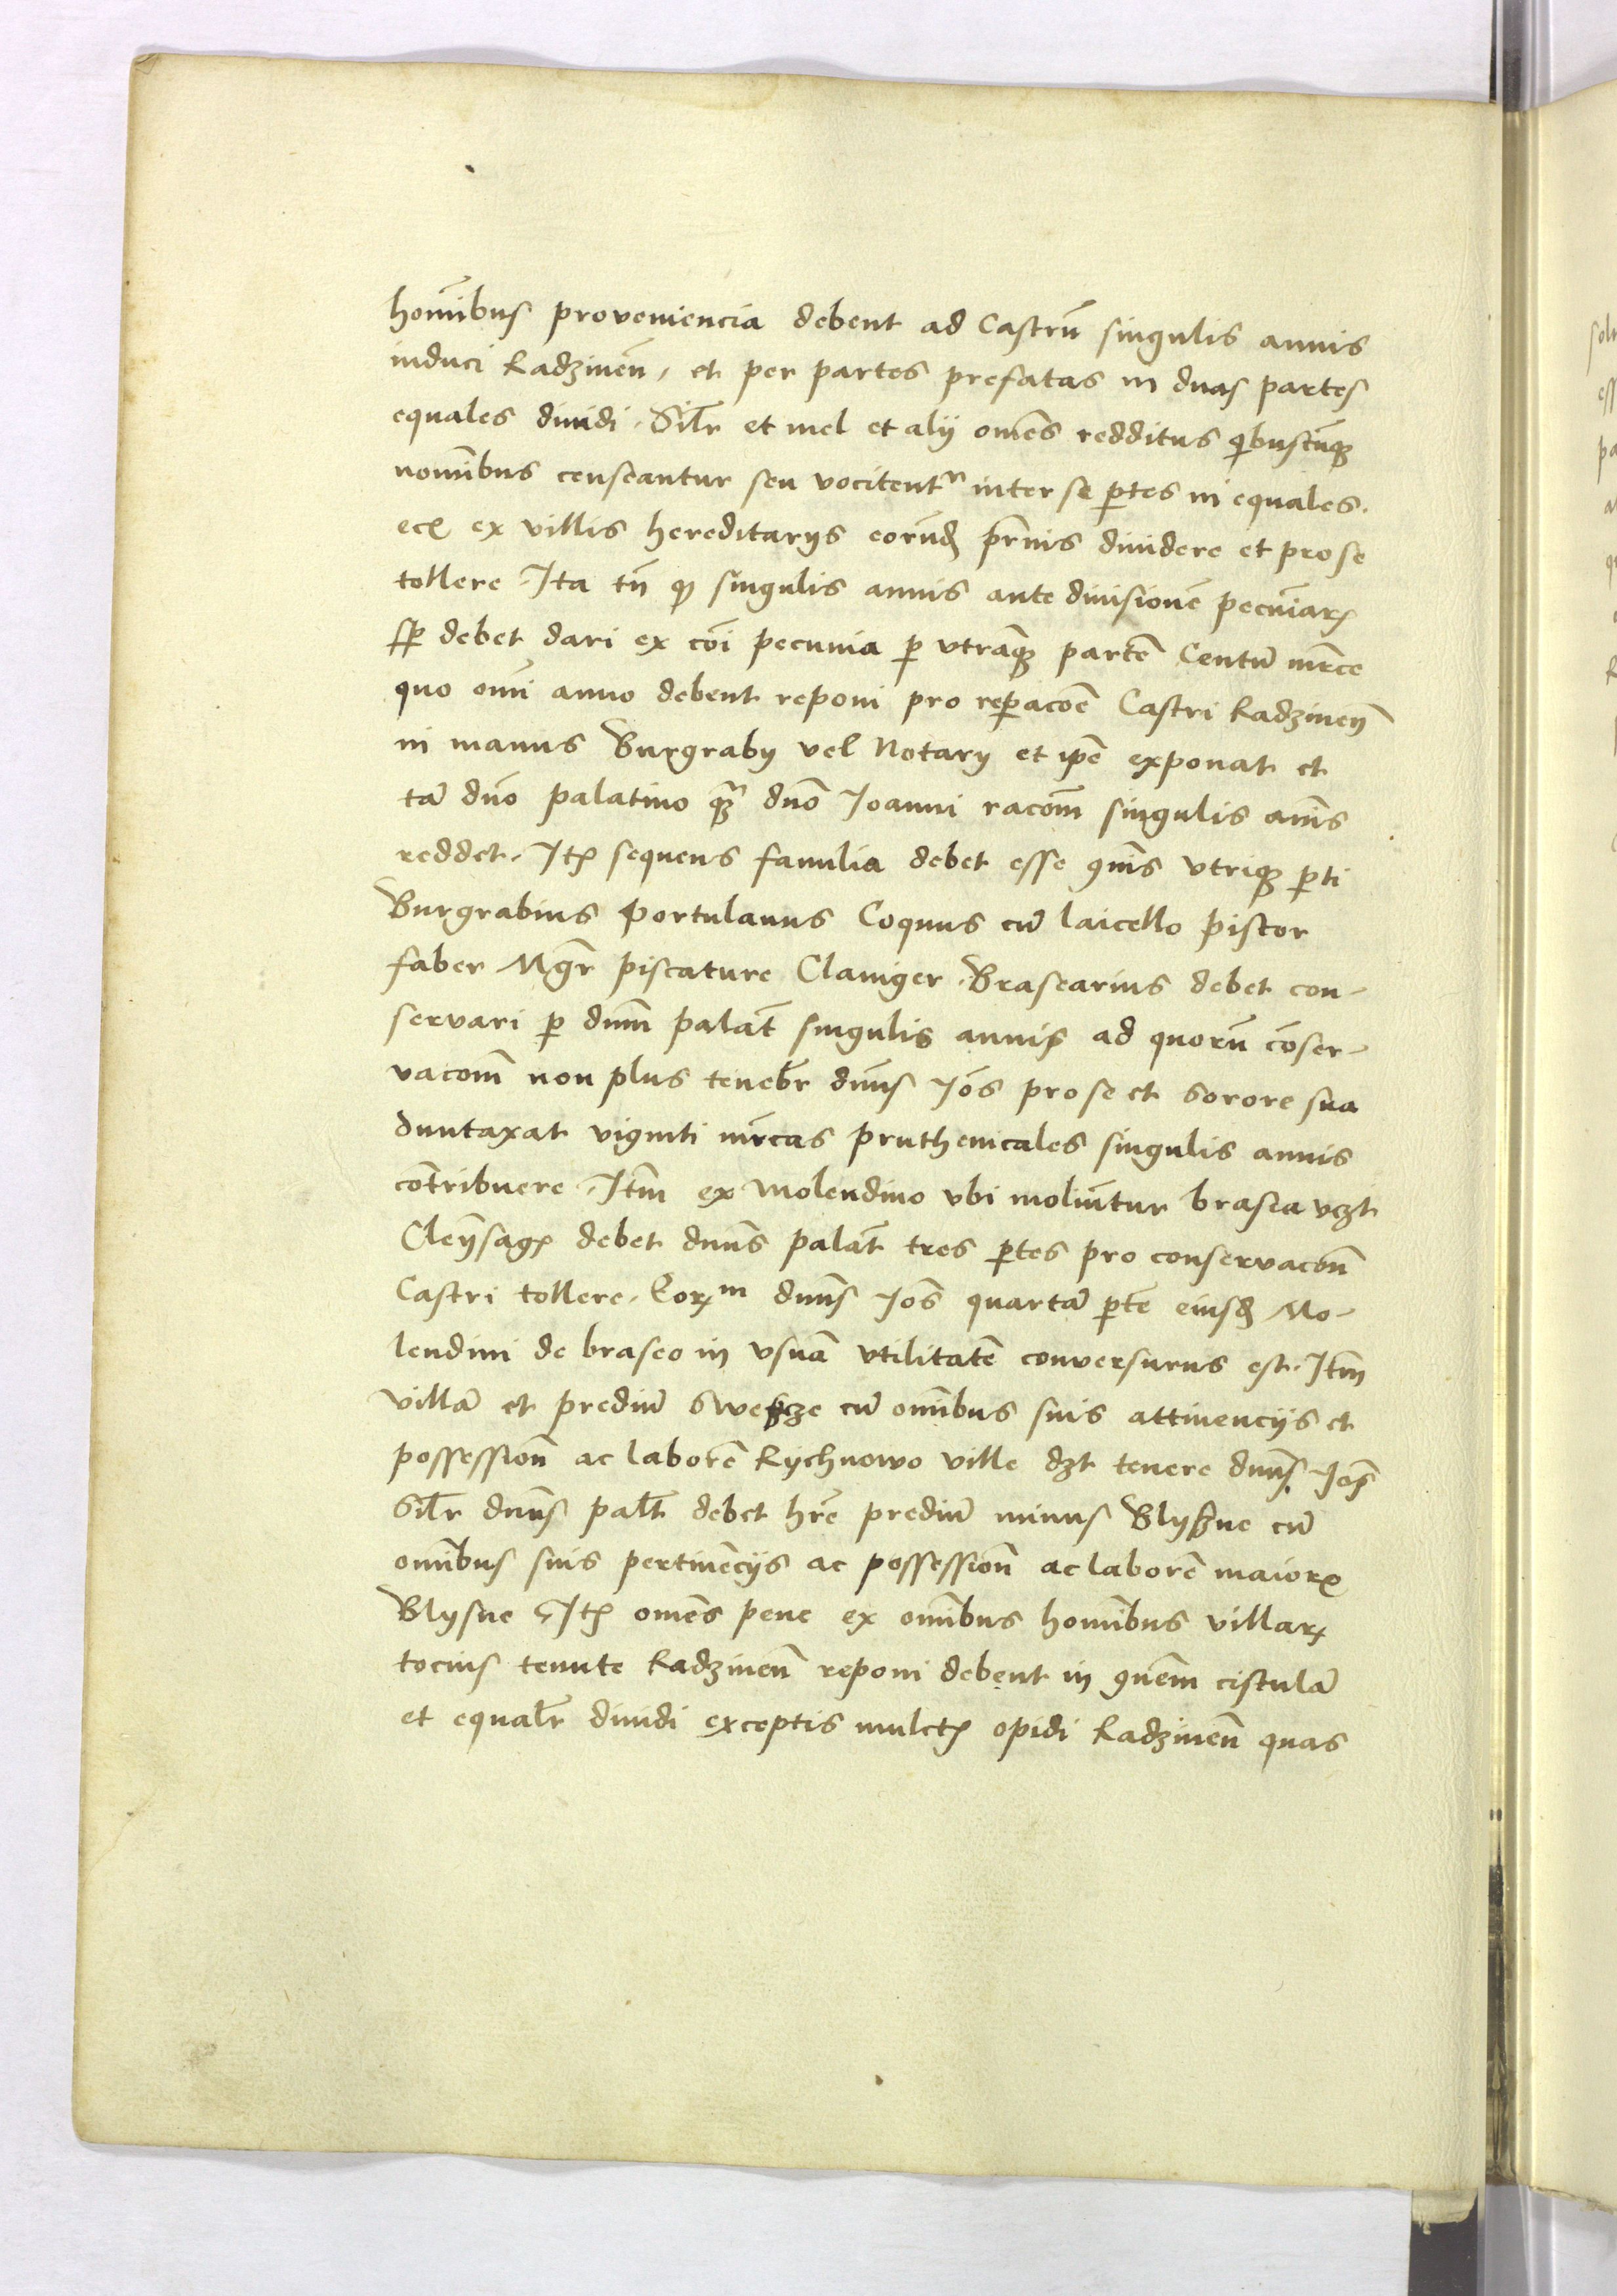 homībus proveniencia debent ad Castrū singulis annis
induci Radzineñ, et per partes prefatas in duas partes
equales dividi. Silr̄ et mel et alij om̄es redditus qibuscūqꝫ
nomībus censeantur seu vocitentr inter se ꝑtes in equales.
eciā ex villis hereditarijs eorundē pr̄nis dividere et pro se
tollere. Ita tn̄ qꝫ singulis annis ante divisionē pecuniarꝝ
sꝑ debet dari ex cōi pecunia ꝑ utrāqꝫ partē Centū mr̄ce
quo om̄i anno debent reponi pro reꝑacoē Castri Radzineñ
in manus Burgrabij vel Notarij et ip̄e exponat et
tā dn̄o palatino qꝫ dn̄o Joanni racom̄ singulis an̄is
reddet. Itꝫ sequens familia debet esse ꝯn̄is utriqꝫ ꝑti
Burgrabius Portulanus Coquus cū laicello pistor
faber Mgr̄ piscature Claviger. Brasearius debet con-
servari ꝑ dn̄m palāt singulis annis ad quorū cōser-
vacom̄ non plus tenebr̄ dn̄us Jōs pro se et sorore sua
duntaxat viginti mr̄cas pruthenicales singulis annis
cōtribuere. Itm̄ ex molendino ubi moliūtur brasea vꝫt
Cleÿsagꝫ debet dn̄us palāt tres ꝑtes pro conservacōn
Castri tollere. Eorꝫm dn̄us Jōs quartā ꝑtē eiusdē Mo-
lendini de braseo in usuā utilitatē conversurus est. Itm̄
villā et prediū Sweßcze cū om̄ibus suis attinencijs et
possession̄ ac laborē Rychnowo ville dꝫt tenere dn̄us Jōs
Silr̄ dn̄us palt̄ debet hr̄e prediū minus Blyßne cū
om̄ibus suis pertinēcijs ac possession̄ ac laborē maiorꝫ
Blysne Itꝫ om̄es pene ex om̄ibus homībus villarꝝ
tocius tenute Radzineñ reponi debent in ꝯnem̄ cistulā
et equalr̄ dividi exceptis mulctꝫ opidi Radzineñ quas